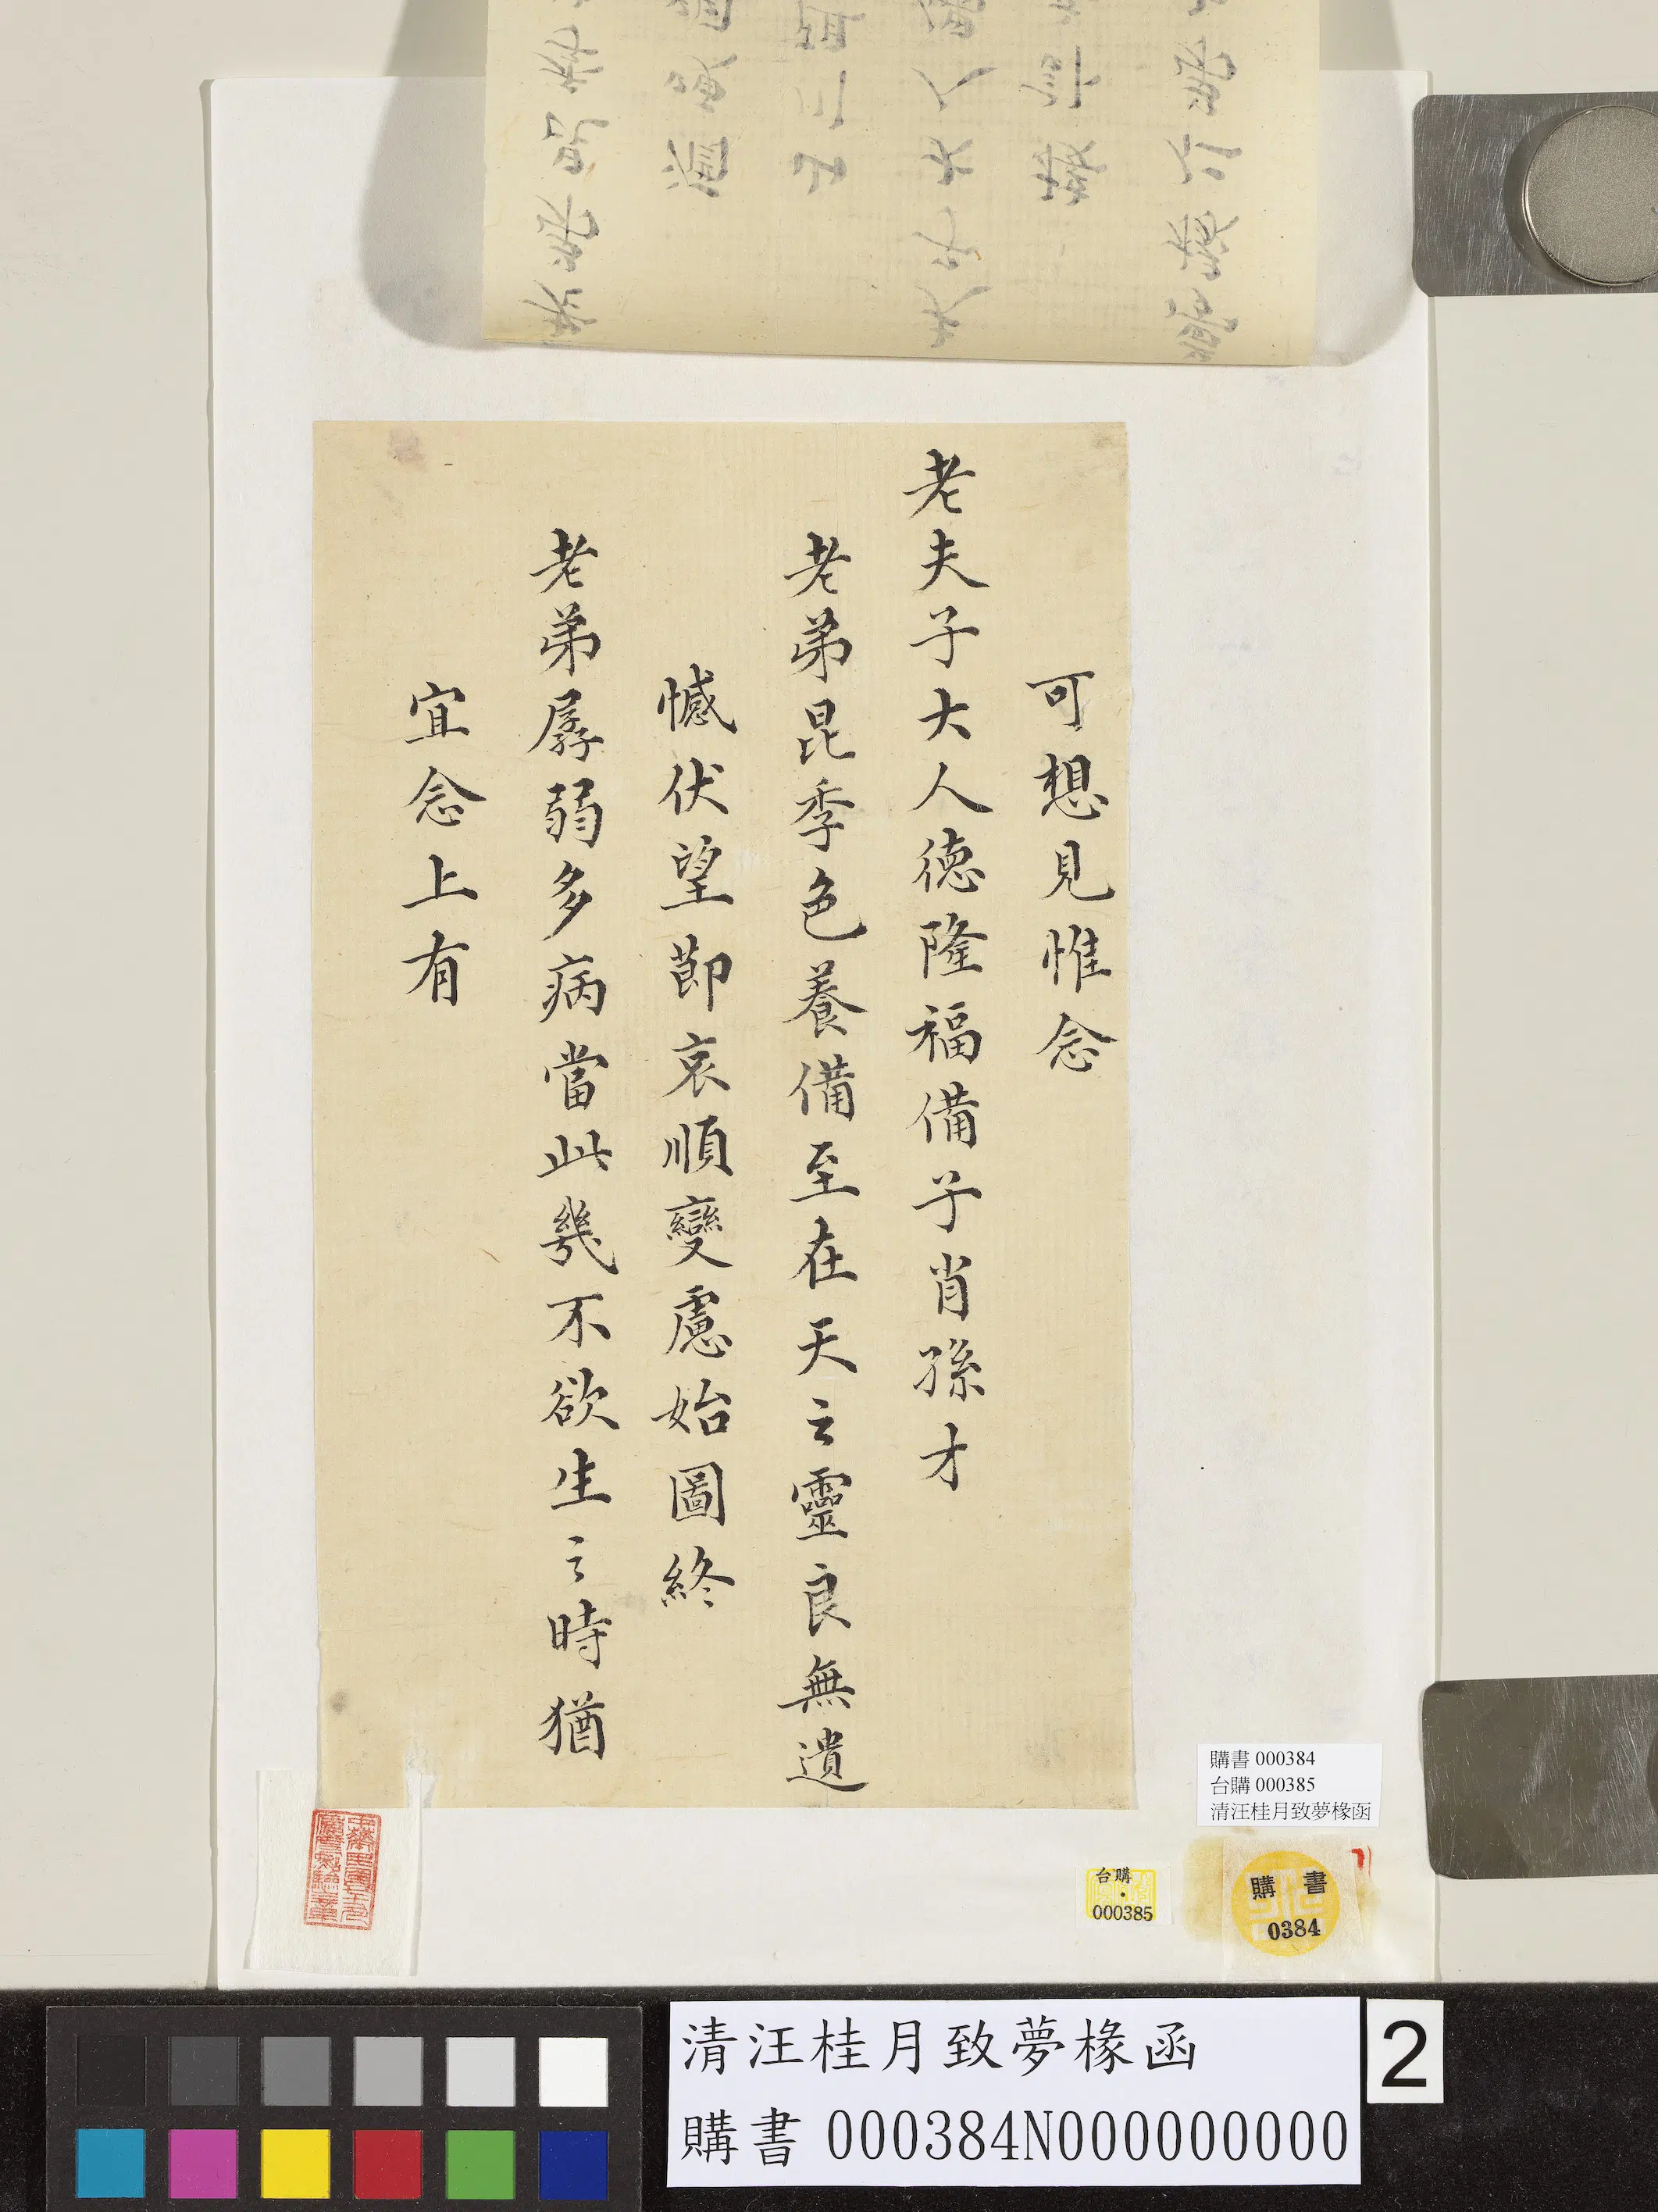 可想見惟念
老夫子大人德隆福備子肖孫才
老弟昆季色養備至在天之靈良無遺
憾伏望節哀順變慮始圖終
老弟孱弱多病當此幾不欲生之時猶
宜念上有
購書 000384
台購 000385
清汪桂月致夢椽函
台購
000385
購書
0384
清汪桂月致夢椽函
購書 000384N000000000
2